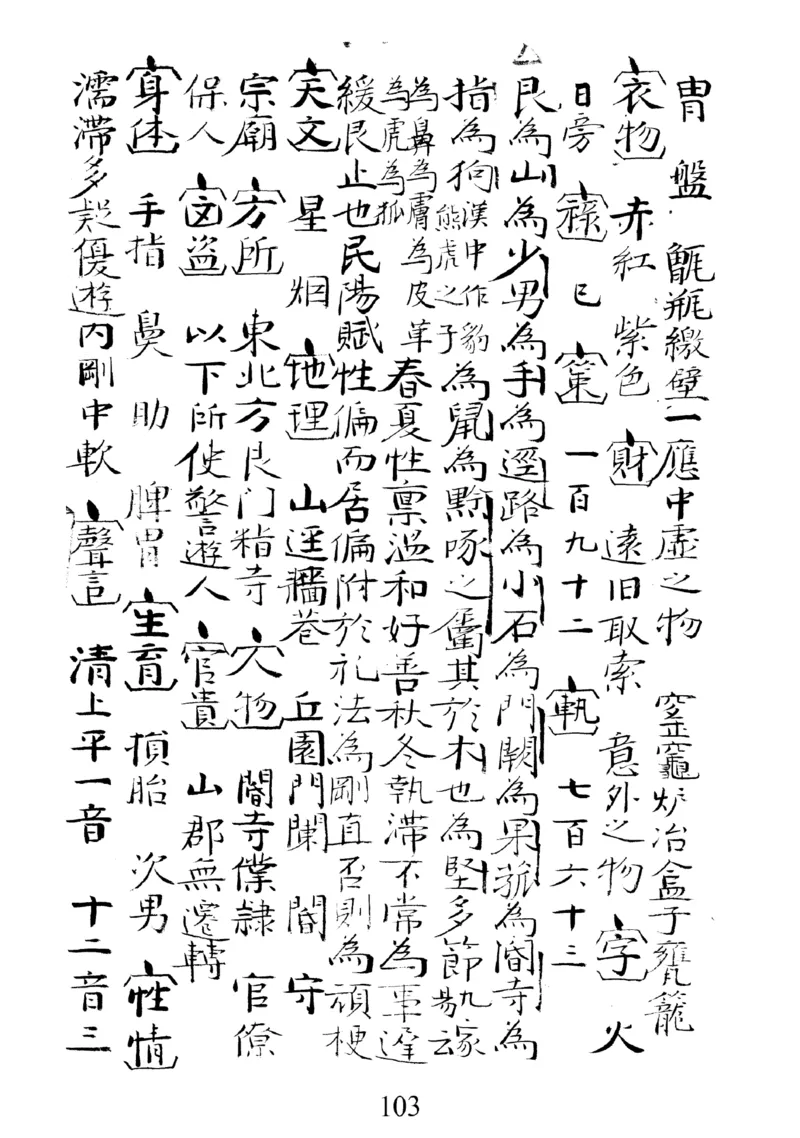 胄 盤 甑瓶繳壁一應中虛之物 窑竈炉冶盒子甕籠
衣物 赤紅 紫色 財 遠旧取索 意外之物 字 火
日旁 祿 巳 策 一百九十二 軌 七百六十三
艮為山為少男為手為逕路為小石為門闕為果蓏為閽寺為
指為狗漢中作豹熊虎之子為鼠為黔啄之屬其於木也為堅多節九家云
為鼻為膚為皮革為虎為狐春夏性禀温和好善秋冬執滯不常為事遲
緩艮止也民陽賦性偏而居偏附於礼法為剛直否則為頑梗
天文 星 烟 地理 山逕牆巷 丘園門闌 閽 守
宗廟 方所 東北方艮门 寺 人物 閽寺僕隸 官僚
保人 盗 以下所使警遊人 官貴 山郡無遷轉
身体 手指 鼻 肋 脾胃 生育 損胎 次男 性情
濡滯多疑優遊内剛中軟 聲言 清上平一音 十二音三
103